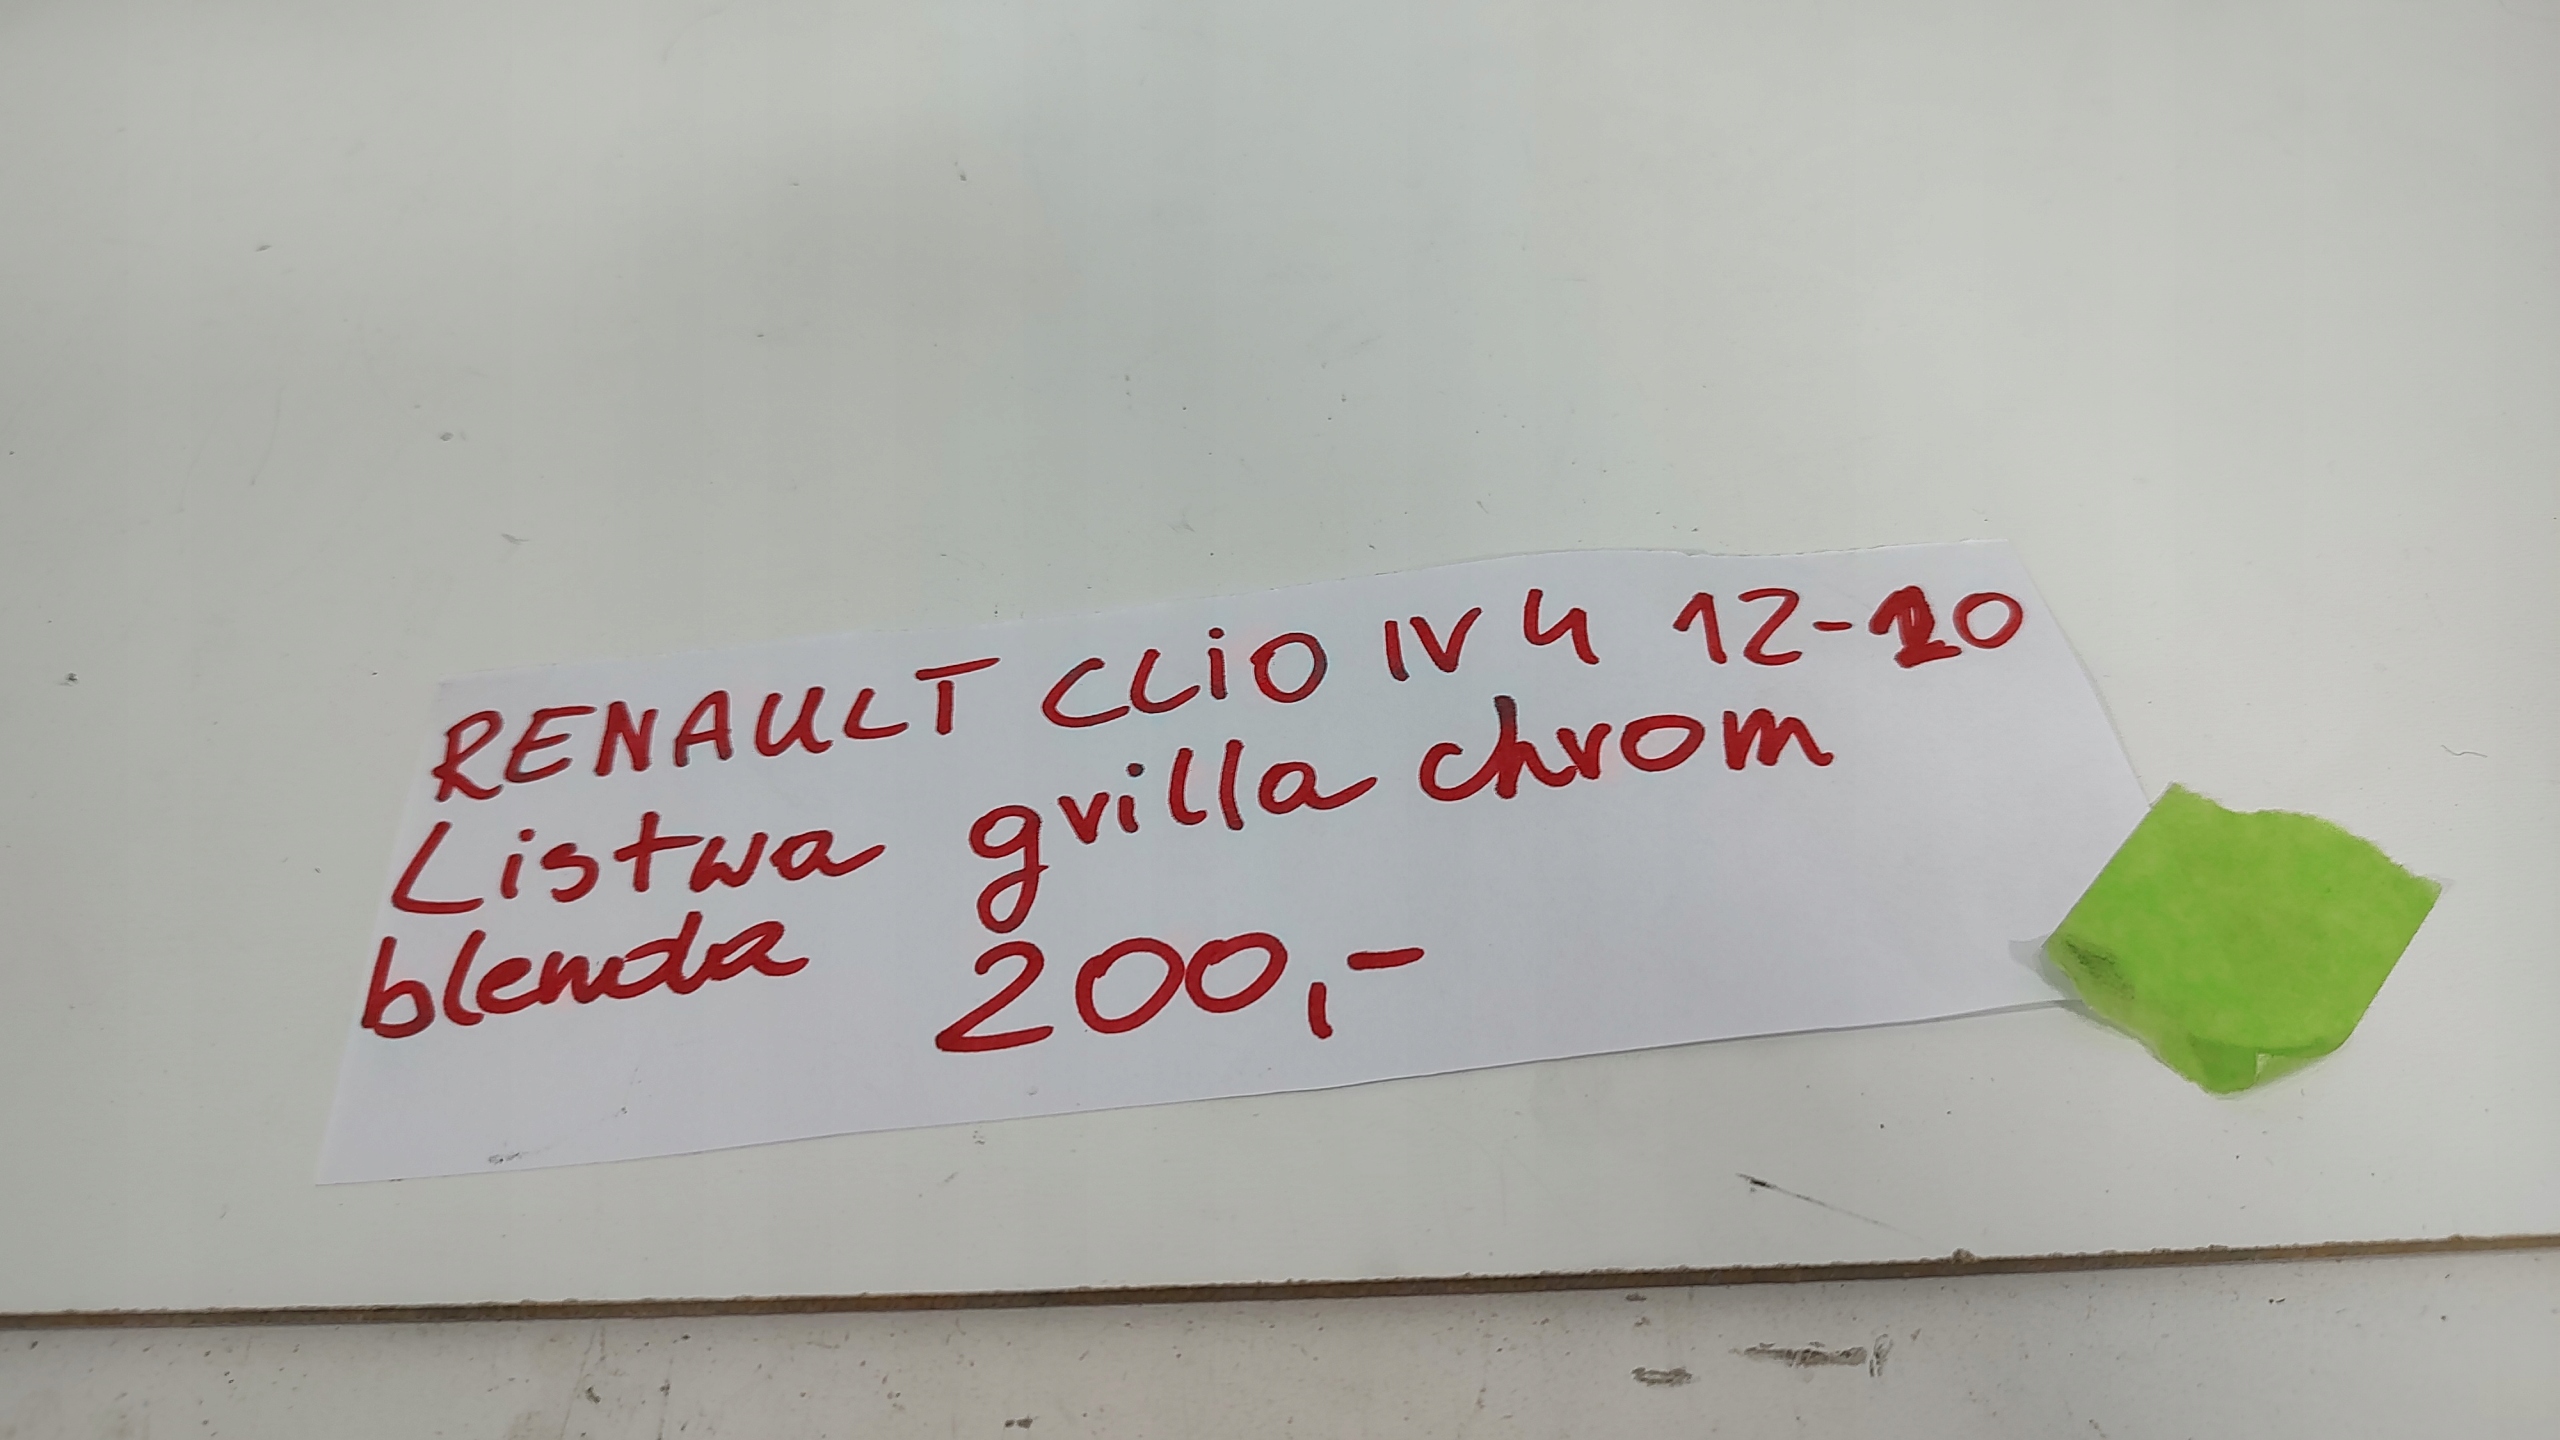 RENAULT CLiO IV 4 12-20
Listwa grilla chrom
blenda 200,-